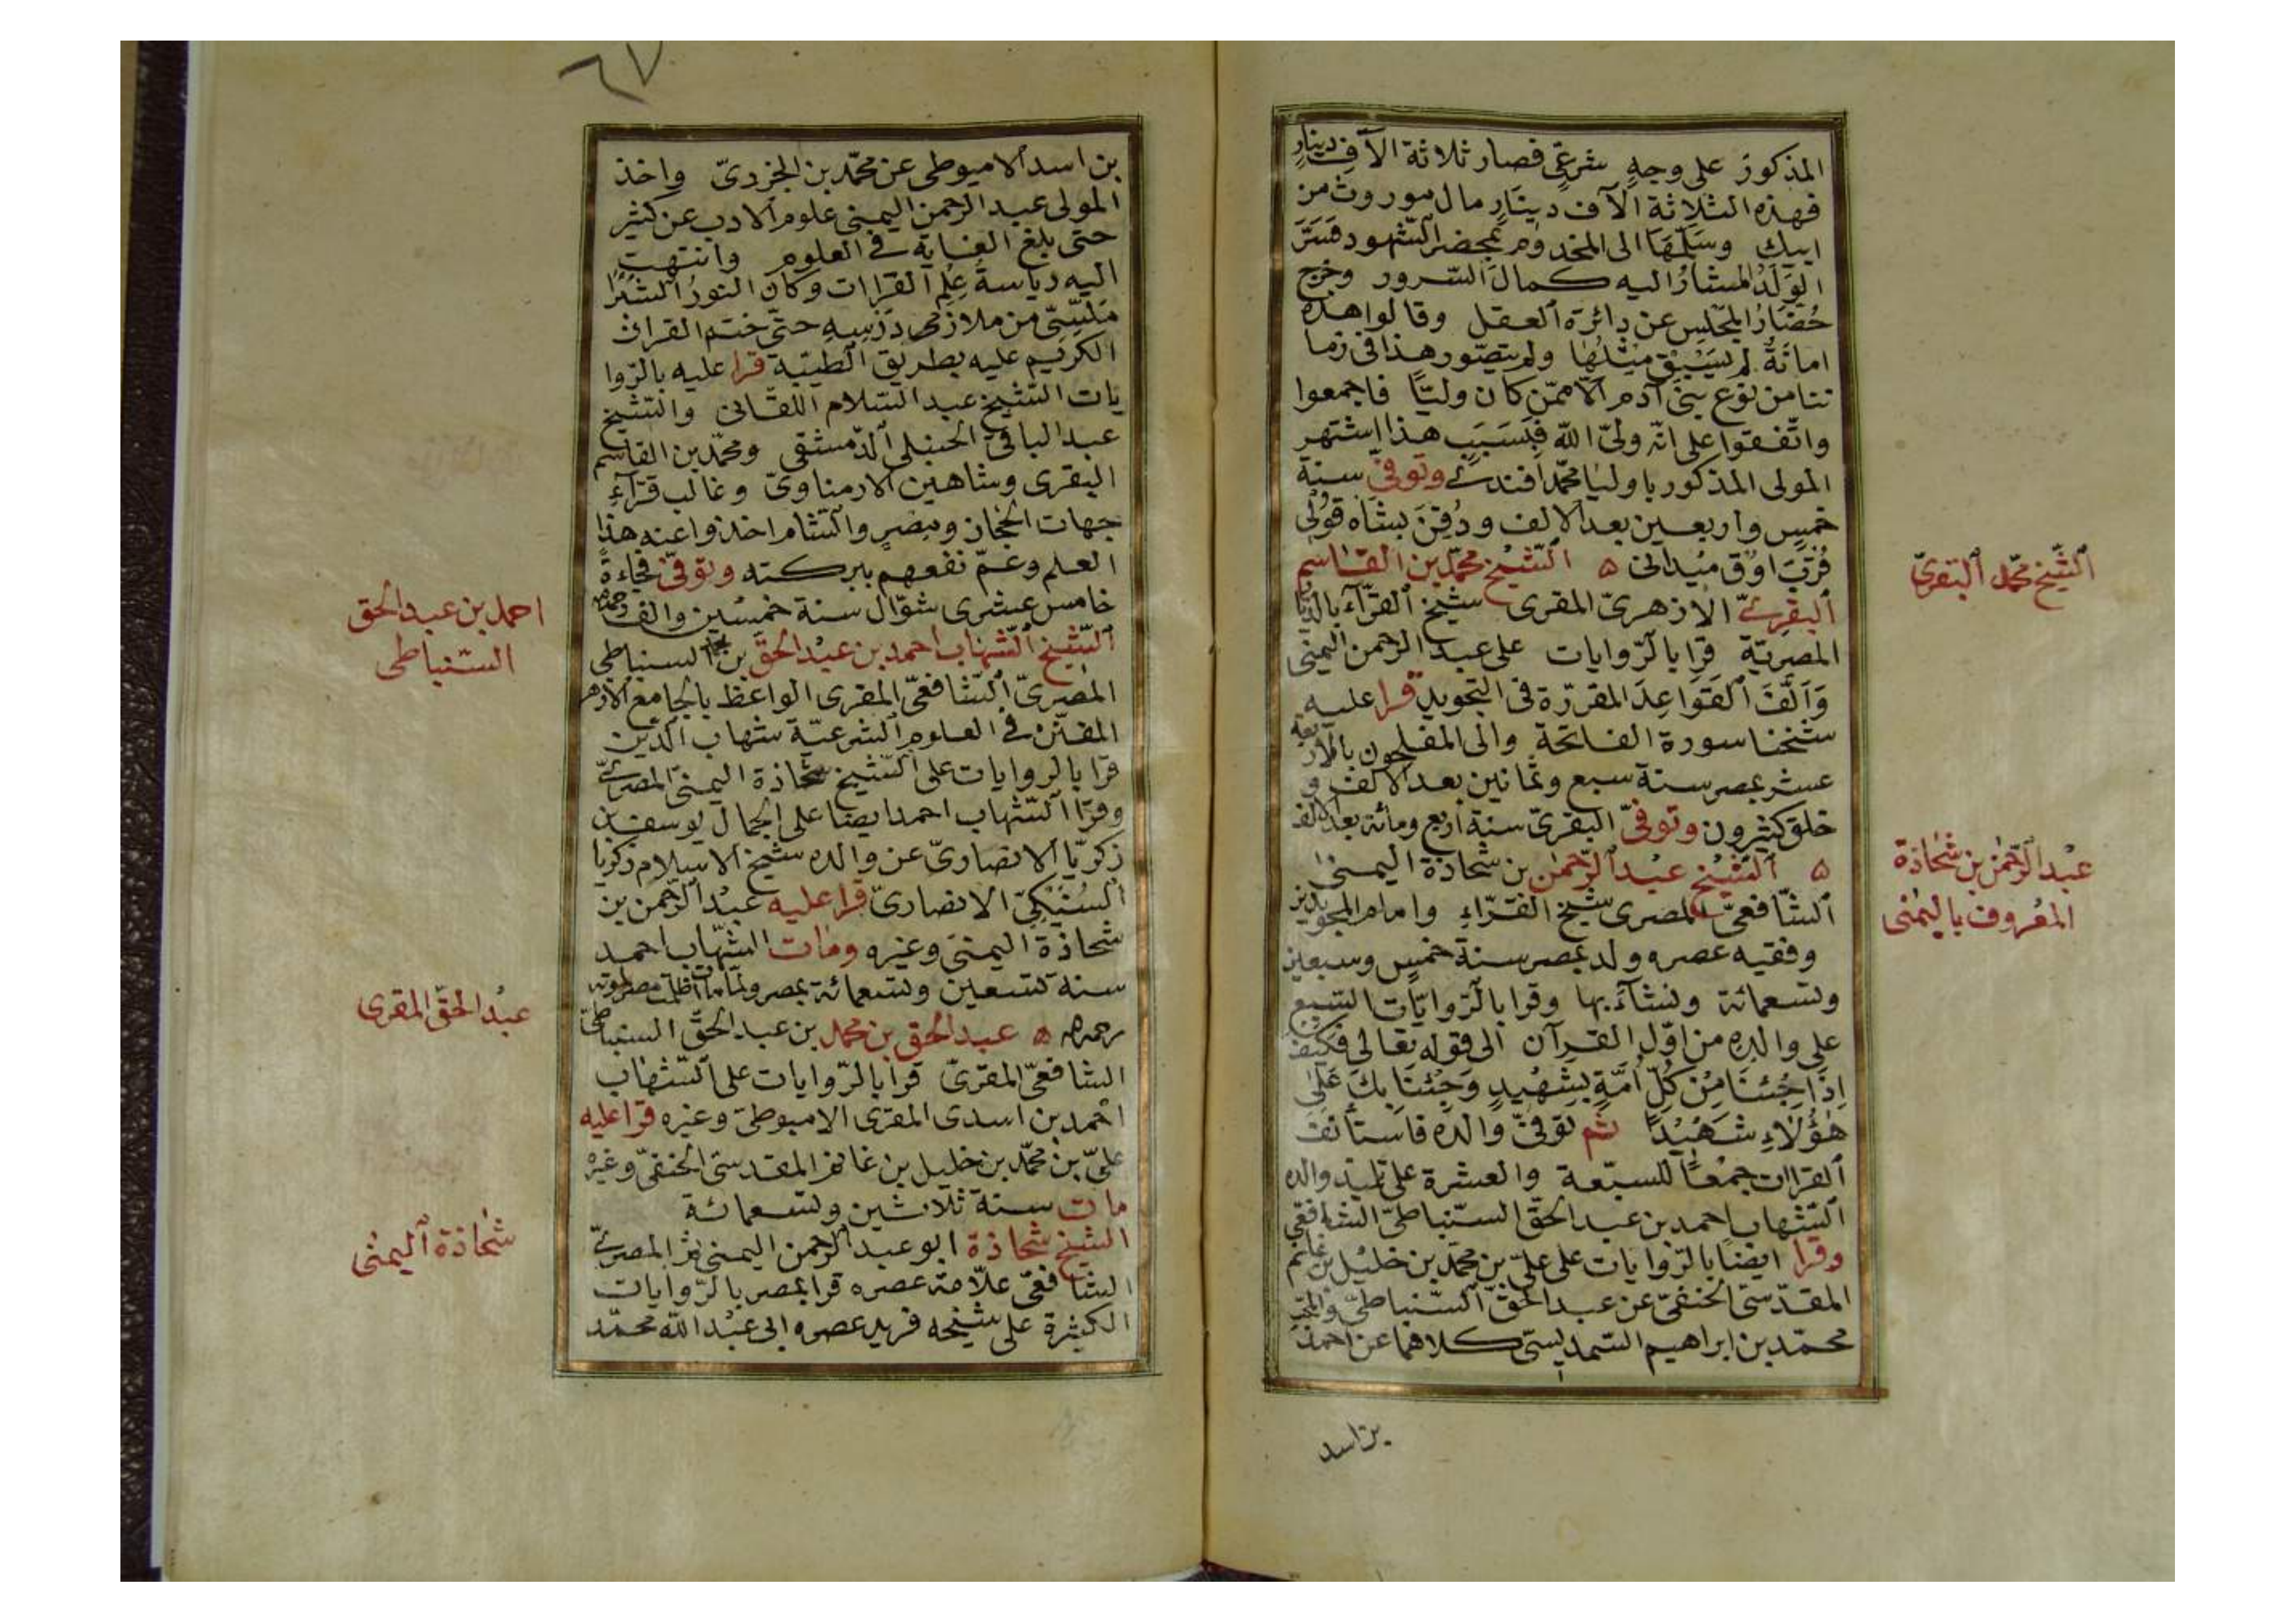 المذكور على وجهٍ شرعىّ فصار ثلاثة الآف دينارٍ
فهذه الثلاثة الآف دينارٍ مال موروث من
ابيك وسلّمها الى المخدوم بمحضر الشهود فسرّ
الولد المشار اليه كمال السّرور وخرج
حضّار المجلس عن دائرة العقل وقالوا هذه
امانةٌ لم يسبق مثلها ولم يتصّور هذا فى زما
ننا من نوع بنى آدم الّا ممّن كان وليّا فاجمعوا
واتّفقوا على انّه ولىّ الله فبسبب هذا اشتهر
المولى المذكور باوليا محمّد افندى وتوفىّ سنة
خمسٍ واربعين بعد الالف ودفن بشاه قولى
قرب اوق ميدانى ۵ الشّيخ محمّد بن القاسم
البقرىّ الازهرىّ المقرى شيخ القرّاء بالديا
المصريّة قرا بالرّوايات على عبد الرحمن اليمنى
والّف القواعد المقررّة فى التجويد قرا عليه
شيخنا سورة الفاتحة والى المفلحون بالاربعة
عشر بمصر سنة سبع وثمانين بعد الالف و
خلق كثيرون وتوفىّ البقرىّ سنة اربع ومائة بعد الالف
۵ الشّيخ عبد الرّحمٰن بن شحاذة اليمنى
الشّافعىّ المصرى شيخ القرّاء وامام المجوّدين
وفقيه عصره ولد بمصر سنة خمسٍ وسبعين
وتسعمائة ونشآء بها وقرا بالرّوايات السّبع
على والده من اوّل القرآن الى قوله تعالى فكيف
اذا جئنا من كلّ امّةٍ بشهيدٍ وجئنا بك على
هٰؤلاء شهيدًا ثم توفىّ والده فاستأنف
القراات جمعًا للسبعة والعشرة على تلميذ والده
الشّهاب احمد بن عبد الحقّ السّنباطىّ الشافعى
وقرا ايضًا بالرّوايات على علىّ بن محمّد بن خليل بن غانم
المقدّسىّ الحنفىّ عن عبد الحقّ السّنباطىّ والمحبّ
محمّد بن ابراهيم السّمديسىّ كلاهما عن احمد
بن اسد
الشّيخ محمّد البقرىّ
عبد الرّحمٰن بن شحاذة
المعروف باليمنى
٦٧
بن اسد الاميوطى عن محمّد بن الجزرىّ واخذ
المولى عبد الرحمن اليمنى علوم الادب عن كثير
حتى بلغ الغاية فى العلوم وانتهت
اليه رياسة علم القراات وكان النور الشبرا
ملسّى من ملازمى درسه حتّى ختم القران
الكريم عليه بطريق الطيّبة قرا عليه بالرّوا
يات الشّيخ عبد السّلام اللقّانى والشّيخ
عبد الباقى الحنبلى الدّمشقى ومحمّد بن القاسم
البقرى وشاهين الارمناوىّ وغالب قرّآء
جهات الحجاز ومصر والشّام اخذوا عنه هذا
العلم وعمّ نفعهم ببركته وتوفىّ فجاءةً
خامس عشرى شوّال سنة خمسين والف
الشّيخ الشّهاب احمد بن عبد الحقّ بن محمد السنباطى
المصرىّ الشّافعىّ المقرى الواعظ بالجامع الازهر
المفنّن فى العلوم الشرعيّة شهاب الدّين
قرا بالروايات على الشّيخ شحاذة اليمنىّ المصرىّ
وقرا الشّهاب احمد ايضا على الجمال يوسف بن
زكريّا الانصارىّ عن والده شيخ الاسلام زكريّا
السّنيكىّ الانصارىّ قرا عليه عبد الرّحمن بن
شحاذة اليمنى وغيره ومات الشهّاب احمد
سنة تسعين وتسعمائة بمصر ولمّا مات اظلمت مصر لموته
رحمه الله ۵ عبد الحقّ بن محمد بن عبد الحقّ السنباطىّ
الشافعىّ المقرىّ قرا بالرّوايات على الشّهاب
احمد بن اسدى المقرى الاميوطىّ وغيره قرا عليه
علىّ بن محمّد بن خليل بن غانم المقدسىّ الحنفىّ وغيره
مات سنة ثلاثين وتسعمائة
الشيخ شحاذة ابو عبد الرّحمن اليمنى المصرىّ
الشافعىّ علاّمة عصره قرا بمصر بالرّوايات
الكثيرة على شيخه فريد عصره ابى عبد الله محمّد
احمد بن عبد الحق
السّنباطى
عبد الحقّ المقرى
شحاذة اليمنى